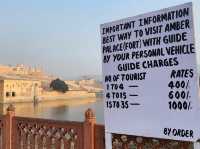 IMPORTANT INFORMATION
BEST WAY TO VISIT AMBER
PALACE(FORT) WITH GUIDE
BY YOUR PERSONAL VEHICLE
GUIDE CHARGES
NO OF TOURIST RATES
1 TO 4 — 400/-
4 TO 15 — 600/-
15 TO 35 — 1000/-
BY ORDER